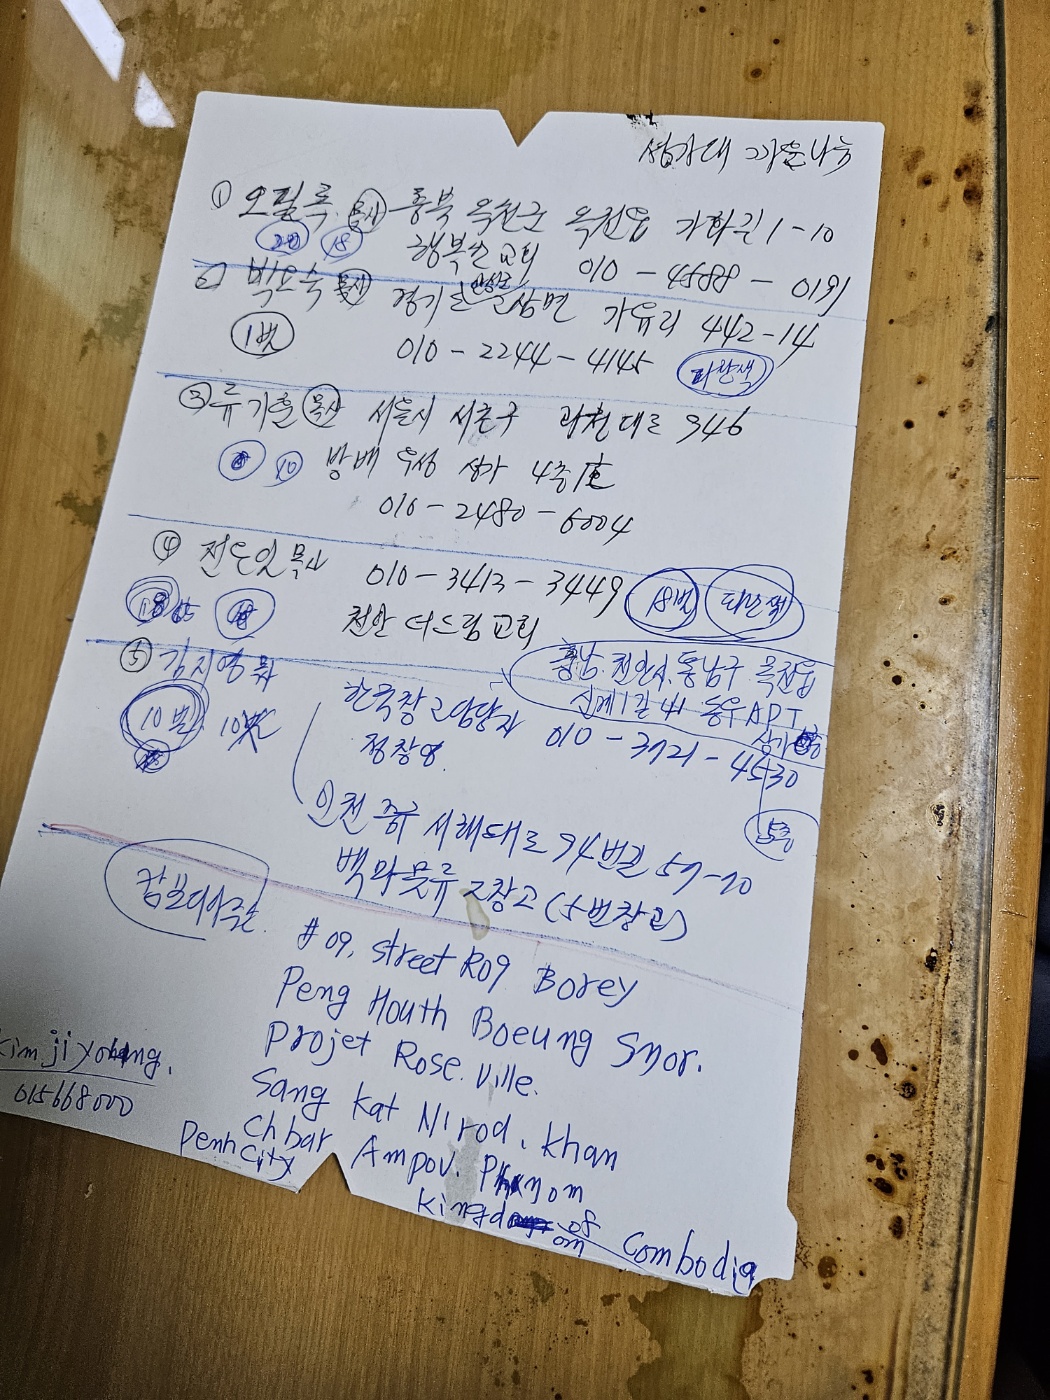 성가대 가운나눔
① 오필록 목사 충북 옥천군 옥천읍 가화길 1-10
20 18 행복한교회 010-4588-0191
② 박오숙 목사 경기도 안성시 삼면 가유리 442-14
1번 010-2244-4145 파란색
③ 류기출 목사 서울시 서초구 과천대로 946
8 10 방배 우성 상가 4층
010-2480-6004
④ 전도일 목사 010-3413-3449 18번 파란색
천안 더드림교회
충남 천안시 동남구 목천읍
신계1길 41 동우APT
상가
5층
⑤ 김지영
10번 한국창고담당자 010-3721-4530
정창영
인천 중구 서해대로 94번길 57-10
백마물류 창고 (5번창고)
캄보디아주소
#09, street R09 Borey
Peng Houth Boeung Snor.
Projet Rose.Ville.
Sang Kat Nirod, khan
Chbar Ampov. Phnom
Penh City
kingdom of Combodia
kim ji young.
015668000